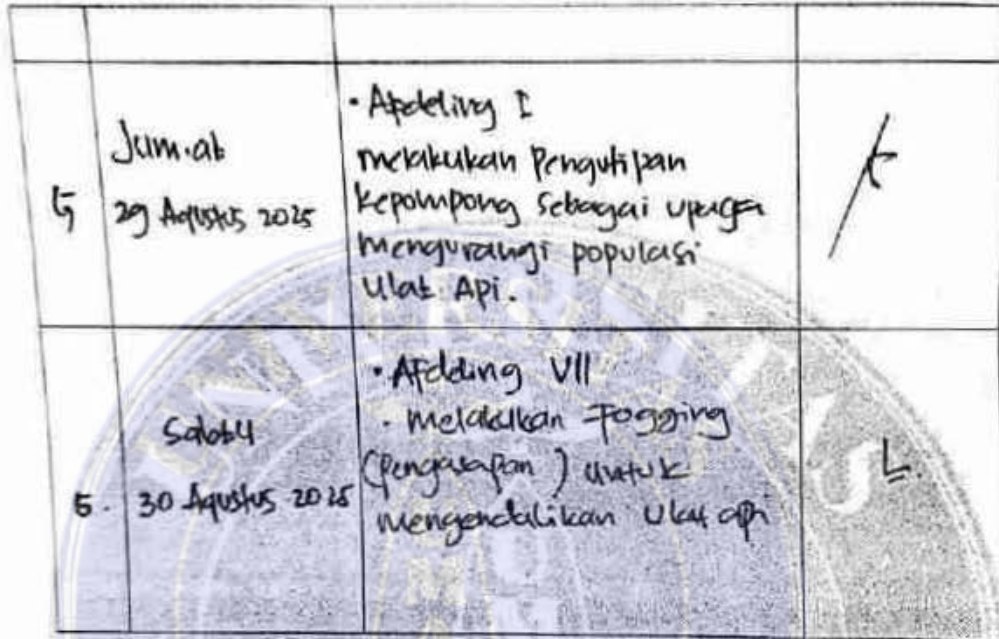 5
Jum.at
29 Agustus 2025
• Afdeling I
melakukan Pengutipan
kepompong sebagai upaya
mengurangi populasi
Ulat Api.
6.
Sabtu
30 Agustus 2025
• Afdeling VII
• melakukan Fogging
(Pengasapan) untuk
mengendalikan Ulat api
UNIVERSITAS